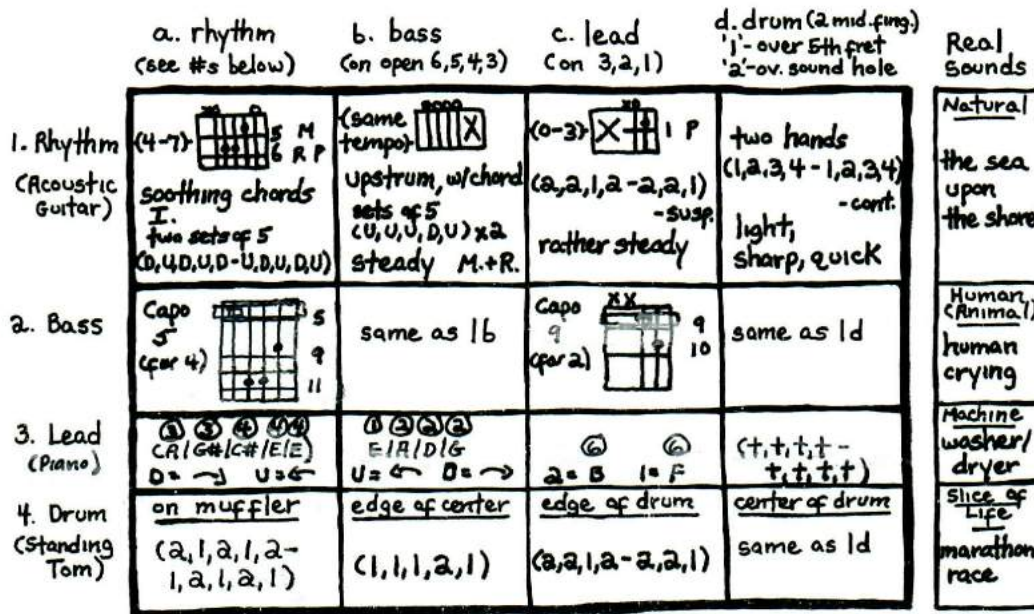 a. rhythm
(see #s below)
b. bass
(on open 6,5,4,3)
c. lead
(on 3,2,1)
d. drum (2 mid. fing.)
'1'- over 5th fret
'2'-ov. sound hole
Real
Sounds
1. Rhythm
(Acoustic
Guitar)
(4-7)
xo o
5 M
6 R P
soothing chords
I.
two sets of 5
(D,U,D,U,D-U,D,U,D,U)
(same
tempo)
oooo
X
upstrum, w/chord
sets of 5
(U,U,U,D,U) x2
steady M.+R.
(0-3)
xo
X
1 P
(2,2,1,2-2,2,1)
-susp.
rather steady
two hands
(1,2,3,4-1,2,3,4)
-cont.
light,
sharp, quick
Natural
the sea
upon
the shore
2. Bass
Capo
5
(for 4)
5
9
11
same as 1b
Capo
9
(for 2)
xx
9
10
same as 1d
Human
(Animal)
human
crying
3. Lead
(Piano)
③ ④ ④ ④
(A/G#/C#/E/E)
D= → U= ←
① ② ② ②
E/A/D/G
U= ← D= →
⑥ ⑥
2=B 1=F
(t,t,t,t-
t,t,t,t)
Machine
washer/
dryer
4. Drum
(Standing
Tom)
on muffler
(2,1,2,1,2-
1,2,1,2,1)
edge of center
(1,1,1,2,1)
edge of drum
(2,2,1,2-2,2,1)
center of drum
same as 1d
Slice of
Life
marathon
race